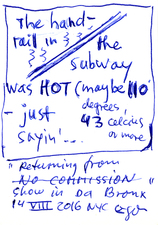 The hand-
rail in
the
subway
was HOT (maybe 110
degrees,
43 celcius
or more
- just
sayin'...
"Returning from
NO COMMISSION"
Show in Da Bronx
14 VIII 2016 NYC